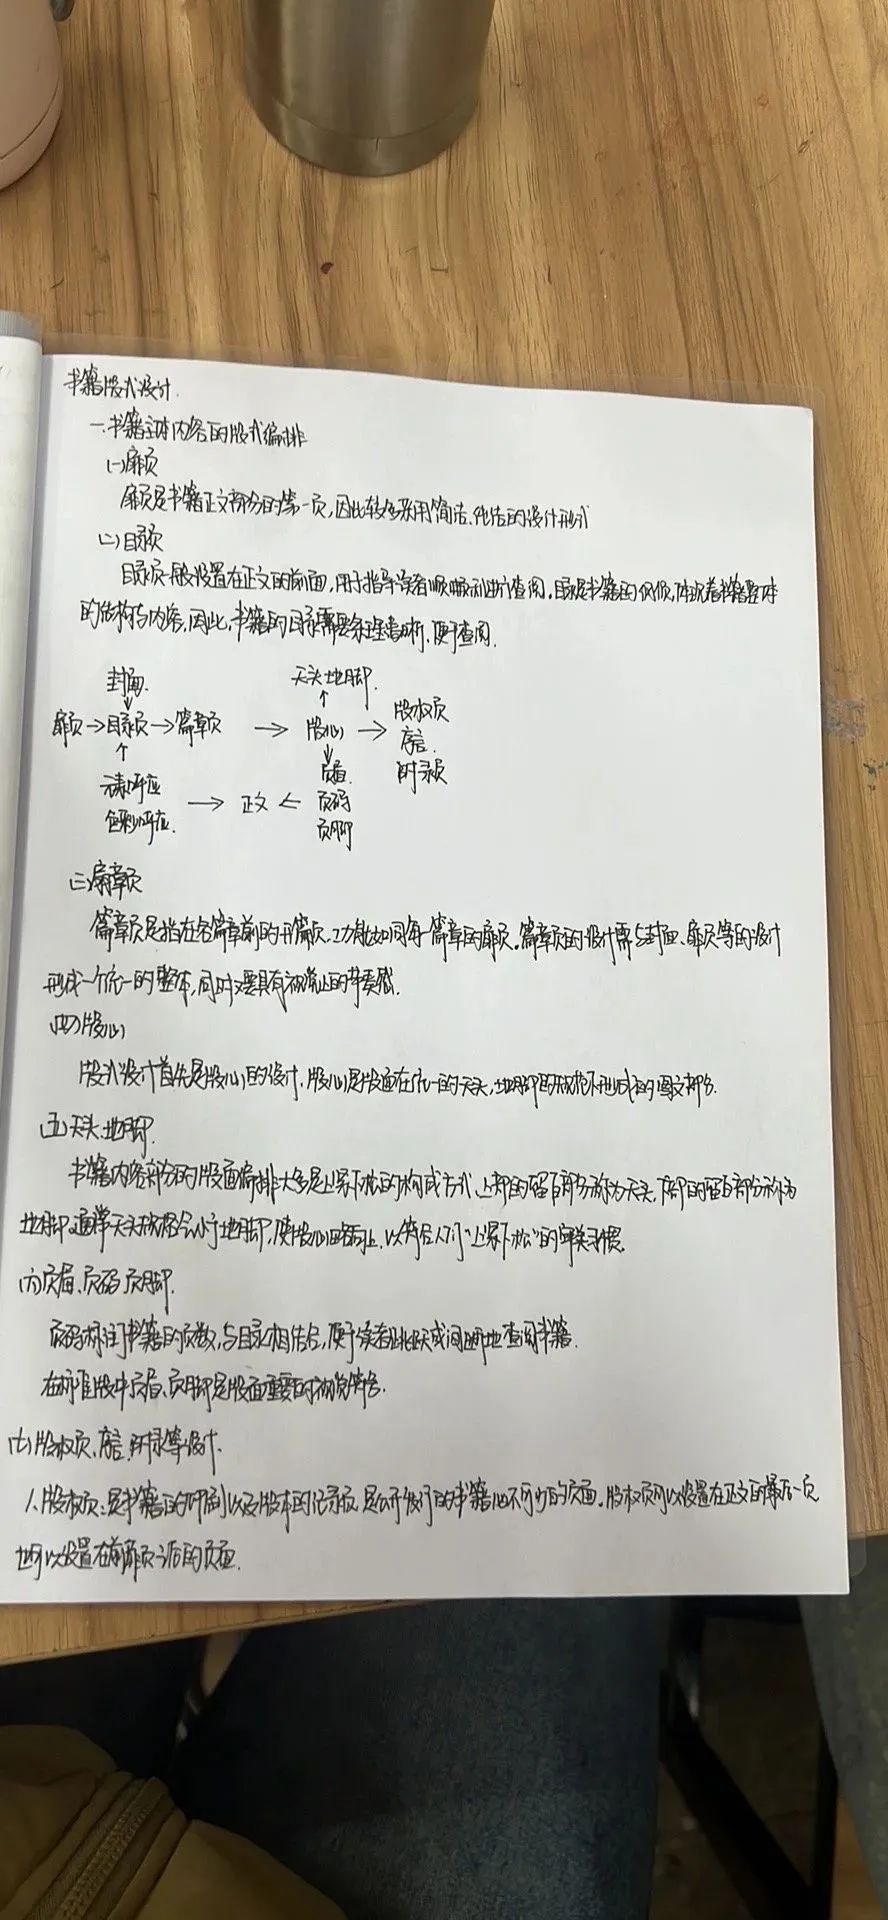 书籍版式设计.
一.书籍主体内容的版式编排
(一)扉页
扉页是书籍正文部分的第一页,因此较多采用简洁、纯洁的设计形式
(二)目录页
目录页一般设置在正文的前面,用于指导读者顺畅顺利进行查阅.目录是书籍的,体现着书籍整体
的结构与内容,因此,书籍的目录需要条理清晰.便于查阅.
封面. 天头 地脚.
扉页→目录页→篇章页 → 版心 → 版权页
序言.
页眉. 附录页
元素呼应
→ 正文 ← 页码
色彩呼应. 页脚
(三)篇章页
篇章页是指在各篇章前的开篇页.功能如同每个篇章的扉页.篇章页的设计需与封面、扉页等的设计
形成一个统一的整体,同时又要具有视觉上的节奏感.
(四)版心
版式设计首先是版心的设计.版心是版面在统一的天头,地脚的规范下形成的图文部分.
(五)天头.地脚.
书籍内容部分的版面编排大多是上紧下松的构成方式、上部的留白部分称为天头,下部的留白部分称为
地脚.通常天头都会小于地脚,使版心略上.以符合人们“上紧下松”的审美习惯.
(六)页眉、页码 页脚.
页码标注书籍的页数,与目录相结合,便于读者跳跃或间断地查阅书籍.
在标准版中页眉、页脚是版面重要的视觉符号.
(七)版权页、序言.附录等设计.
1.版权页:是书籍的印刷以及版本的记录页 是公开发行的书籍必不可少的页面.版权页可以设置在正文的最后一页
也可以设置在前扉页之后的页面.